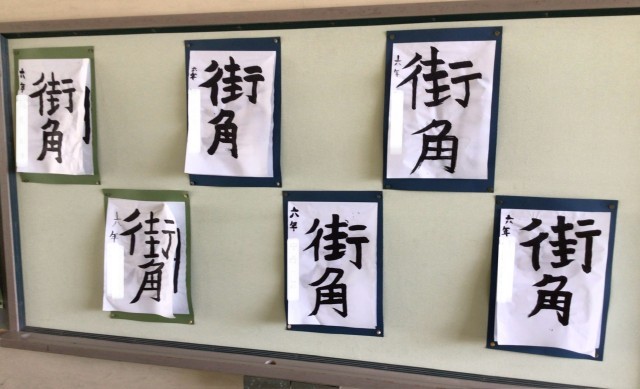 六年
街角
六年
街角
六年
街角
六年
街角
六年
街角
六年
街角